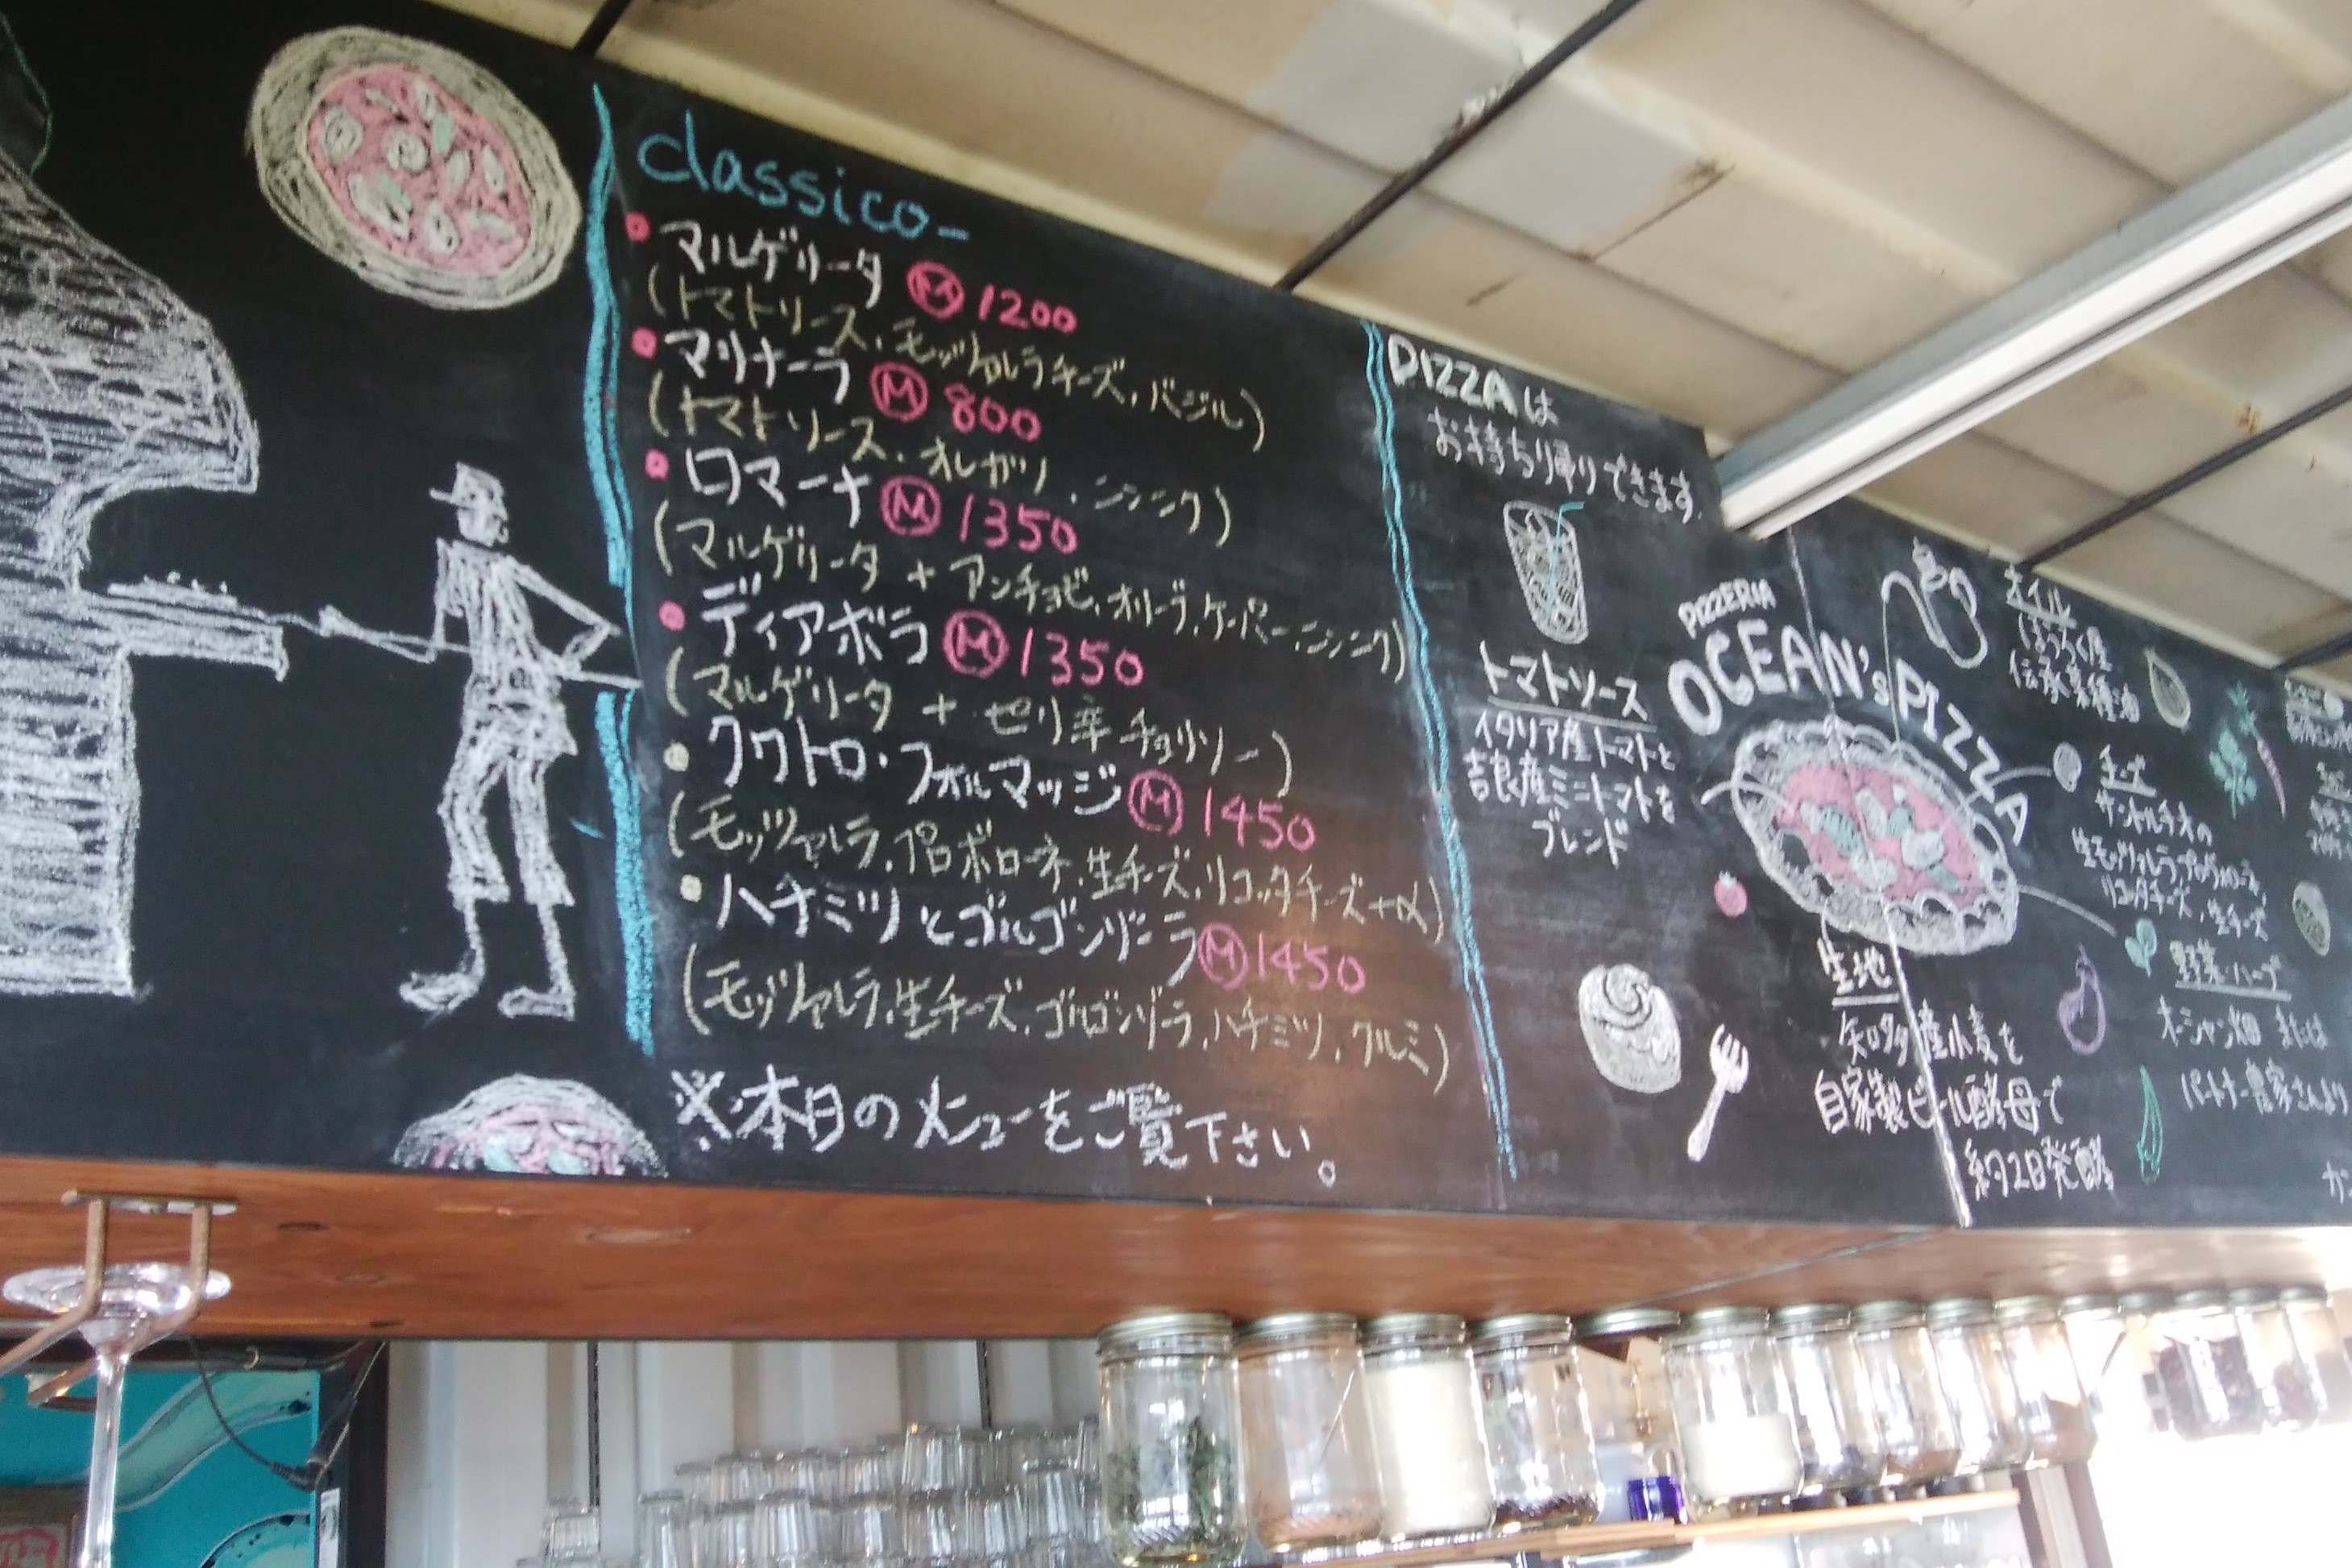 classico-
マルゲリータ Ⓜ 1200
(トマトソース、モッツァレラチーズ、バジル)
マリナーラ Ⓜ 800
(トマトソース、オレガノ、ニンニク)
ロマーナ Ⓜ 1350
(マルゲリータ + アンチョビ、オリーブ、ケーパー、ニンニク)
ディアボラ Ⓜ 1350
(マルゲリータ + ピリ辛チョリソー)
クワトロ・フォルマッジ Ⓜ 1450
(モッツァレラ、プロボローネ、生チーズ、リコッタチーズ+α)
ハチミツとゴルゴンゾーラ Ⓜ 1450
(モッツァレラ、生チーズ、ゴルゴンゾーラ、ハチミツ、クルミ)
※本日のメニューをご覧下さい。
PIZZAは
お持ち帰りできます。
トマトソース
イタリア産トマトと
吉良産ミニトマトを
ブレンド
PIZZERIA
OCEAN's PIZZA
オイル
伝承菜種油
チーズ
生モッツァレラ、プロヴォローネ、
リコッタチーズ、生チーズ
野菜・ハーブ
オーシャン畑 または
パートナー農家さんより
生地
知多産小麦を
自家製ビール酵母で
約2日発酵